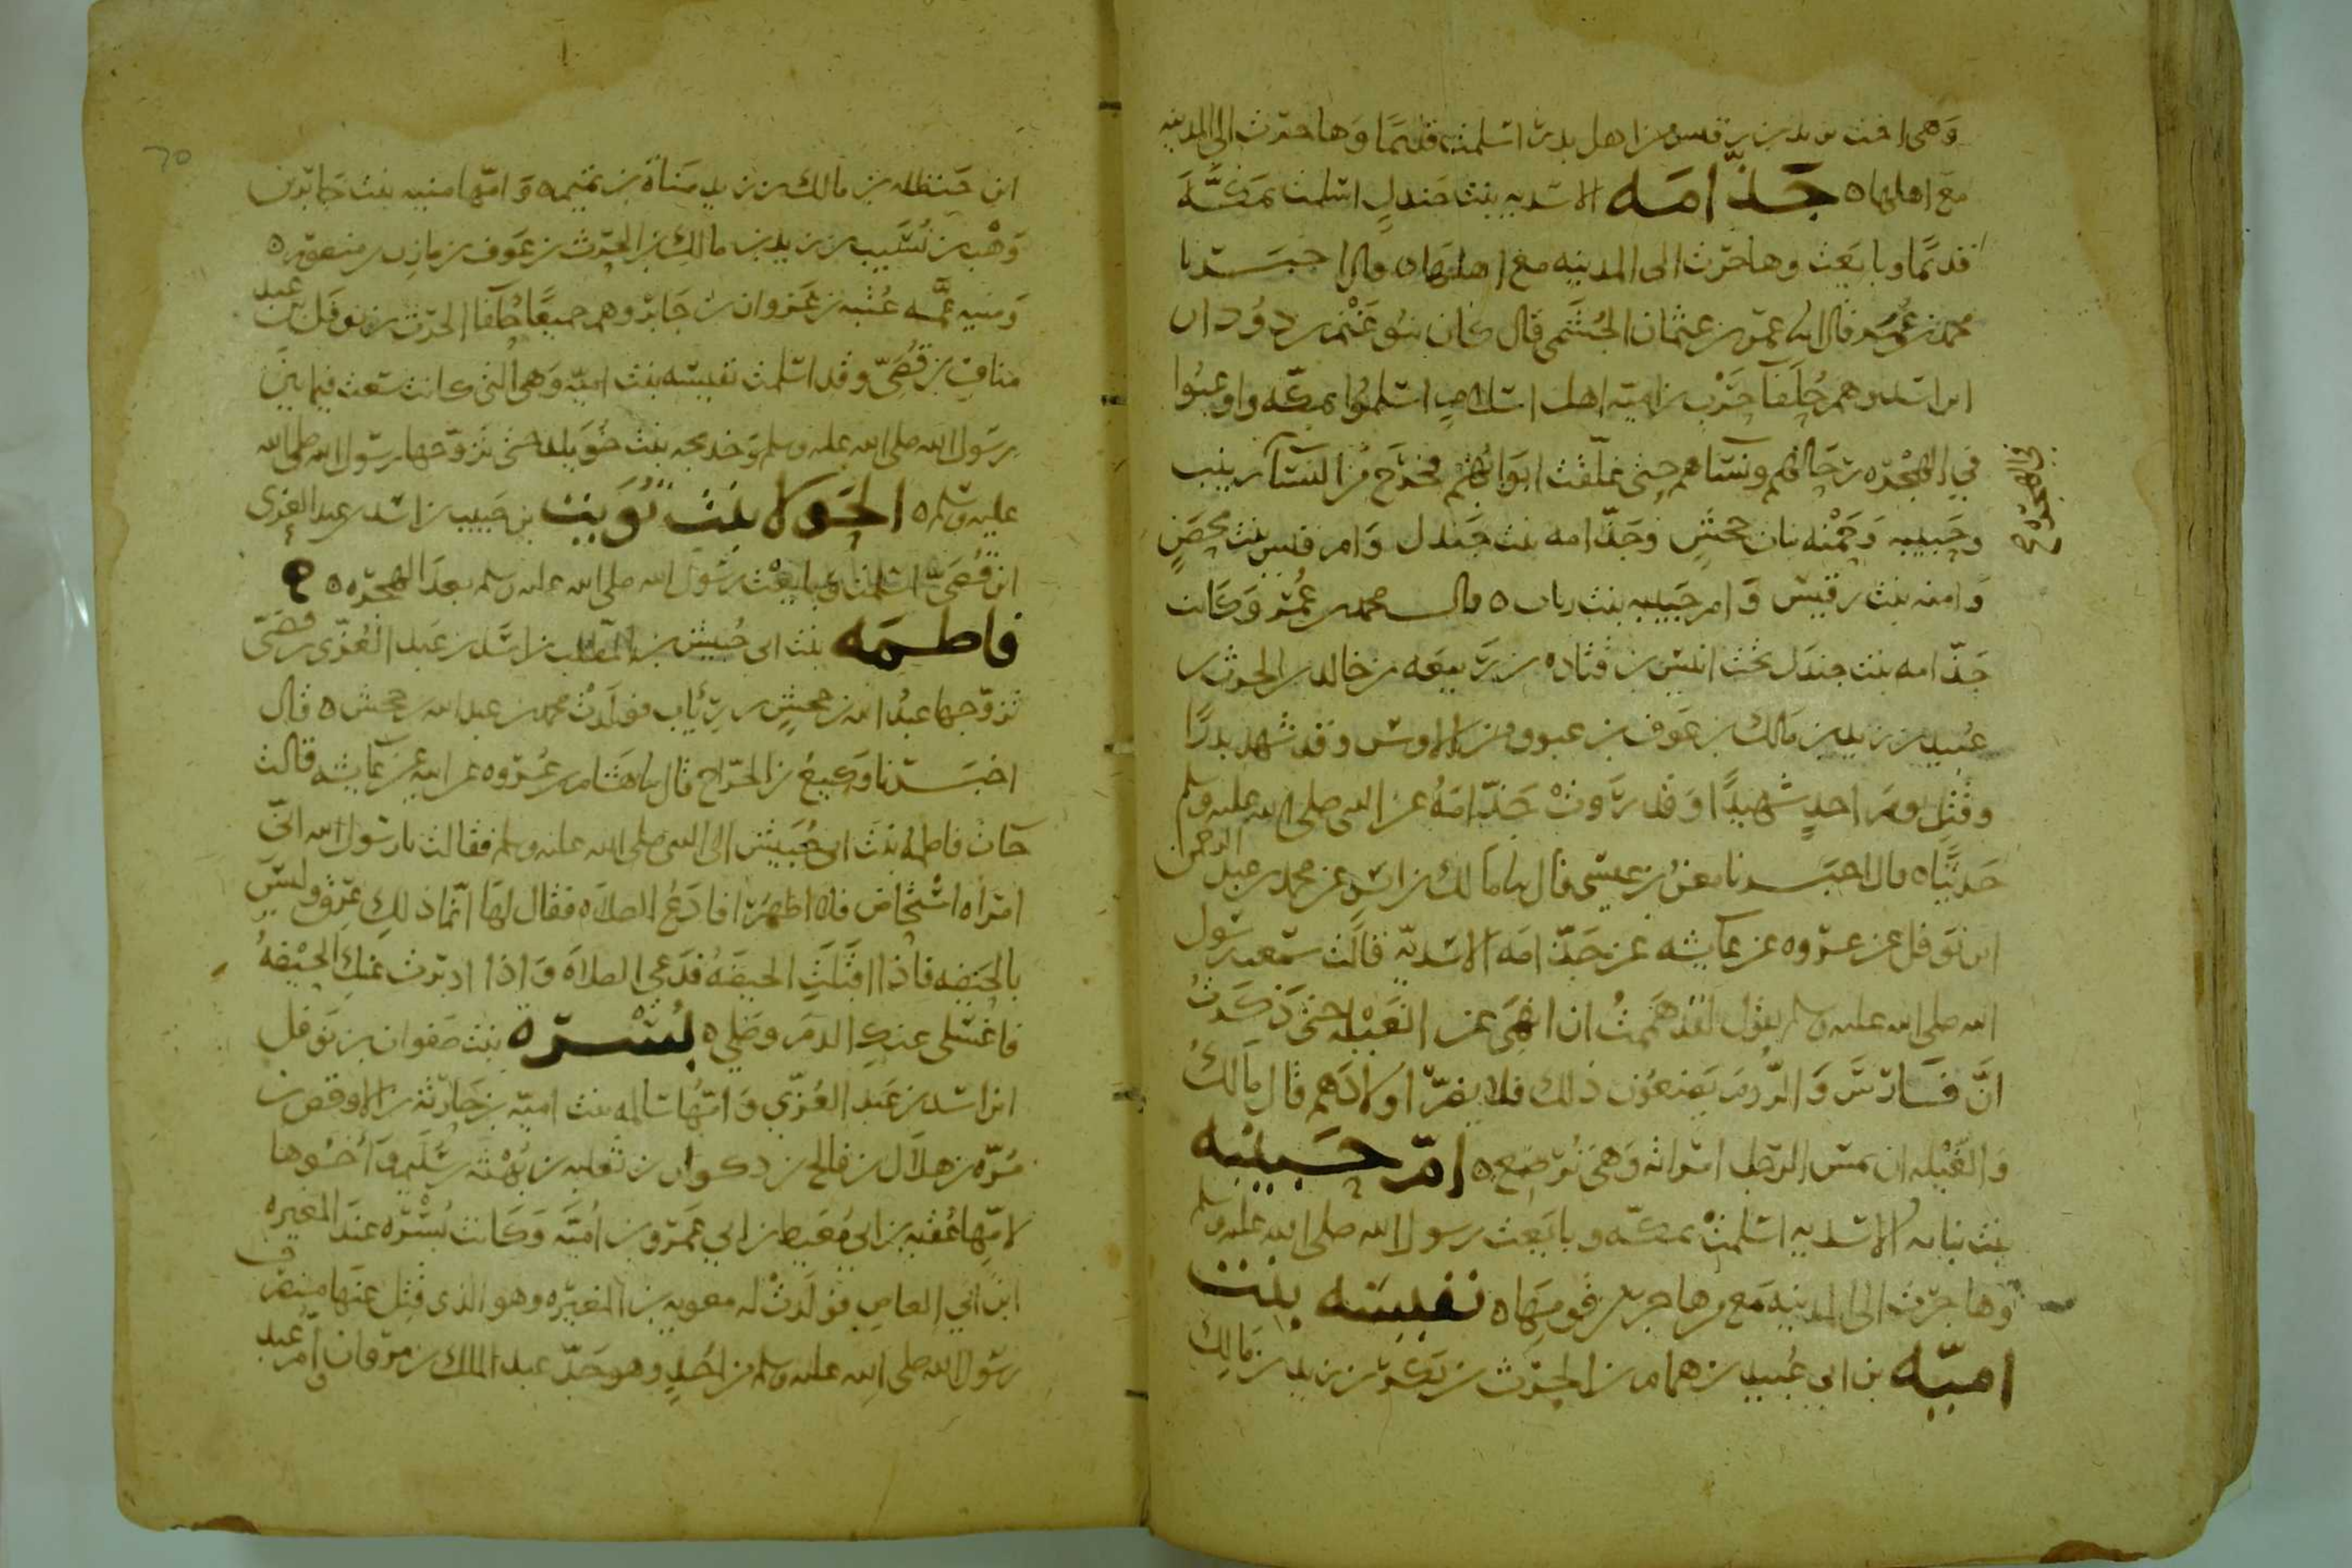 وهى اخت يزيد بن رقيش من اهل بدر اسلمت قديما وهاجرت الى المدينه
مع اهلها ه جذامه الاسديه بنت جندل اسلمت بمكة
قديما وبايعت وهاجرت الى المدينه مع اهلها ه قال اخبرنا
محمد بن عمر قال عمر بن عثمان الجحشى قال كان بنو غنم بن دودان
ابن اسد وهم حلفا حرب بن اميه اهل اسلام اسلموا بمكه واوعبوا
في الهجره رجالهم ونساهم حتى غلقت ابوابهم فخرج من النسآ زينب
في الهجره
وحبيبه وحمنه بنات جحش وجذامه بنت جندل وام قيس بنت محصن
وامنه بنت رقيش وام حبيبه بنت نباته ه قال محمد بن عمر وكانت
جذامه بنت جندل تحت انيس بن قتاده بن ربيعه بن خالد بن الحرث بن
عبيد بن زيد بن مالك بن عوف بن عمرو من الاوس وقد شهد بدرا
وقتل يوم احد شهيدا وقد روت جذامه عن النبي صلى الله عليه وسلم
حديثا ه قال اخبرنا معن بن عيسى قال مالك بن انس عن محمد بن عبد الرحمن
ابن نوفل عن عروه عن عايشه عن جذامه الاسديه قالت سمعت رسول
الله صلى الله عليه وسلم يقول لقد هممت ان انهى عن الغيله حتى ذكرت
ان فارس والروم يصنعون ذلك فلا يضر اولادهم قال مالك
والغيله ان يمس الرجل امراته وهى ترضع ه ام حبيبه
بنت نباته الاسديه اسلمت بمكه وبايعت رسول الله صلى الله عليه وسلم
وهاجرت الى المدينه مع من هاجر من قومها ه نفيسه بنت
اميه بن ابي عبيد بن همام بن الحرث بن بكر بن زيد بن مالك
ابن حنظله بن مالك بن زيد مناة بن تميم ه وامها منيه بنت جابر بن
وهب بن نسيب بن زيد بن مالك بن الحرث بن عوف بن مازن بن منصور ه
ومنيه عمه عتبه بن غزوان بن جابر وهم جميعا حلفا الحرث بن نوفل بن عبد
مناف بن قصى وقد اسلمت نفيسه بنت اميه وهى التى كانت سعت فيما بين
رسول الله صلى الله عليه وسلم وخديجه بنت خويلد حتى تزوجها رسول الله صلى الله
عليه وسلم ه الحولا بنت تويت بن حبيب بن اسد بن عبد العزى
ابن قصى اسلمت وبايعت رسول الله صلى الله عليه وسلم بعد الهجره ه
فاطمه بنت ابى حبيش بن المطلب بن اسد بن عبد العزى بن قصى
تزوجها عبد الله بن جحش بن رياب فولدت محمد بن عبد الله بن جحش ه قال
اخبرنا وكيع بن الجراح قال هشام بن عروه عن ابيه عن عايشه قالت
جات فاطمه بنت ابى حبيش الى النبى صلى الله عليه وسلم فقالت يا رسول الله انى
امراه استحاض فلا اطهر افادع الصلاه فقال لها انما ذلك عرق وليس
بالحيضه فاذا اقبلت الحيضه فدعى الصلاه واذا ادبرت عنك الحيضه
فاغسلى عنك الدم وصلى ه بسره بنت صفوان بن نوفل
ابن اسد بن عبد العزى وامها سالمه بنت اميه بن حارثه بن الاوقص بن
مره بن هلال بن فالج بن ذكوان بن ثعلبه بن بهثه بن سليم واخوها
لامها عقبه بن ابى معيط بن ابي عمرو بن اميه وكانت بسره عند المغيره
ابن ابي العاص فولدت له معويه بن المغيره وهو الذى قتل عنها منصرف
رسول الله صلى الله عليه وسلم من احد وهو جد عبد الملك بن مروان ام عبد